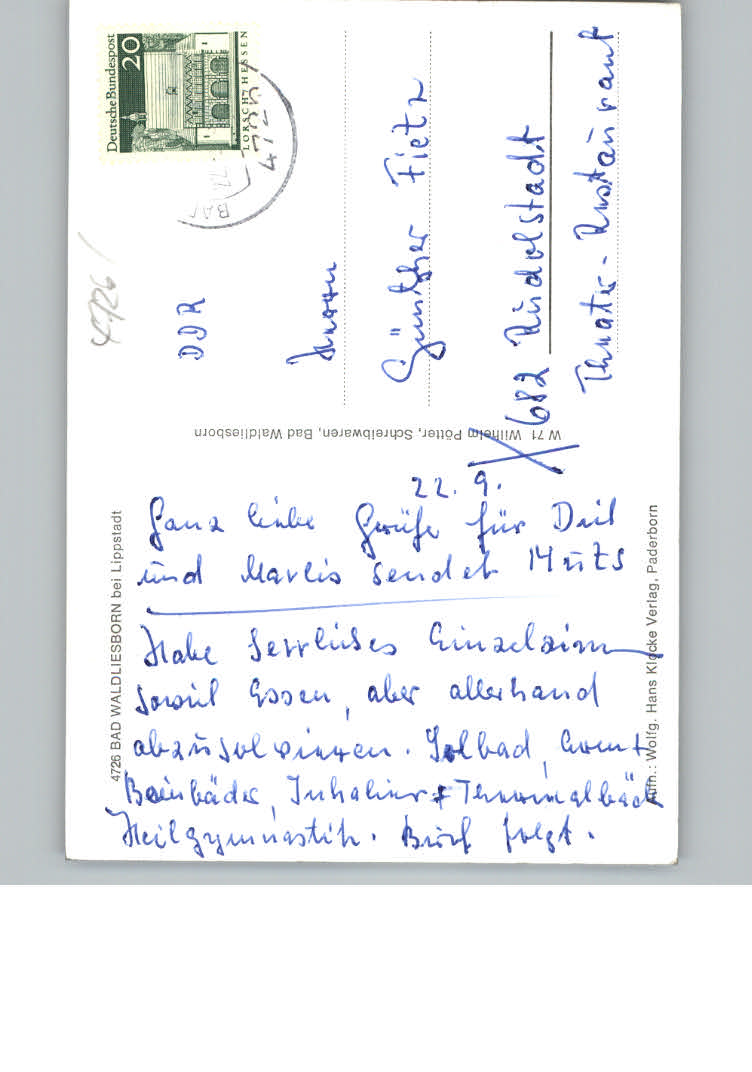 Deutsche Bundespost
20
LORSCH / HESSEN
BAD
4726
DDR
Herrn
Günther Fietz
682 Rudolstadt
Theater-Restaurant
W 71 Wilhelm Pötter, Schreibwaren, Bad Waldliesborn
4726 BAD WALDLIESBORN bei Lippstadt
22. 9.
Ganz liebe Grüße für Dich
und Marlis sendet
Habe herrliches Einzelzim
sowie Essen, aber allerhand
abzusolvieren. Solbad,
Beinbäder, Inhalier + Thermalbäder
Heilgymnastik. Brief folgt.
Aufn.: Wolfg. Hans Klocke Verlag, Paderborn